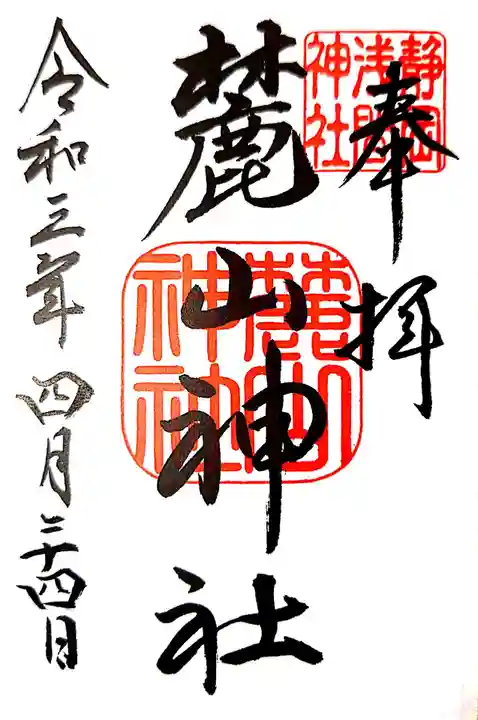 奉拝
静岡
浅間
神社
麓山神社
麓山
神社
令和三年四月二十四日